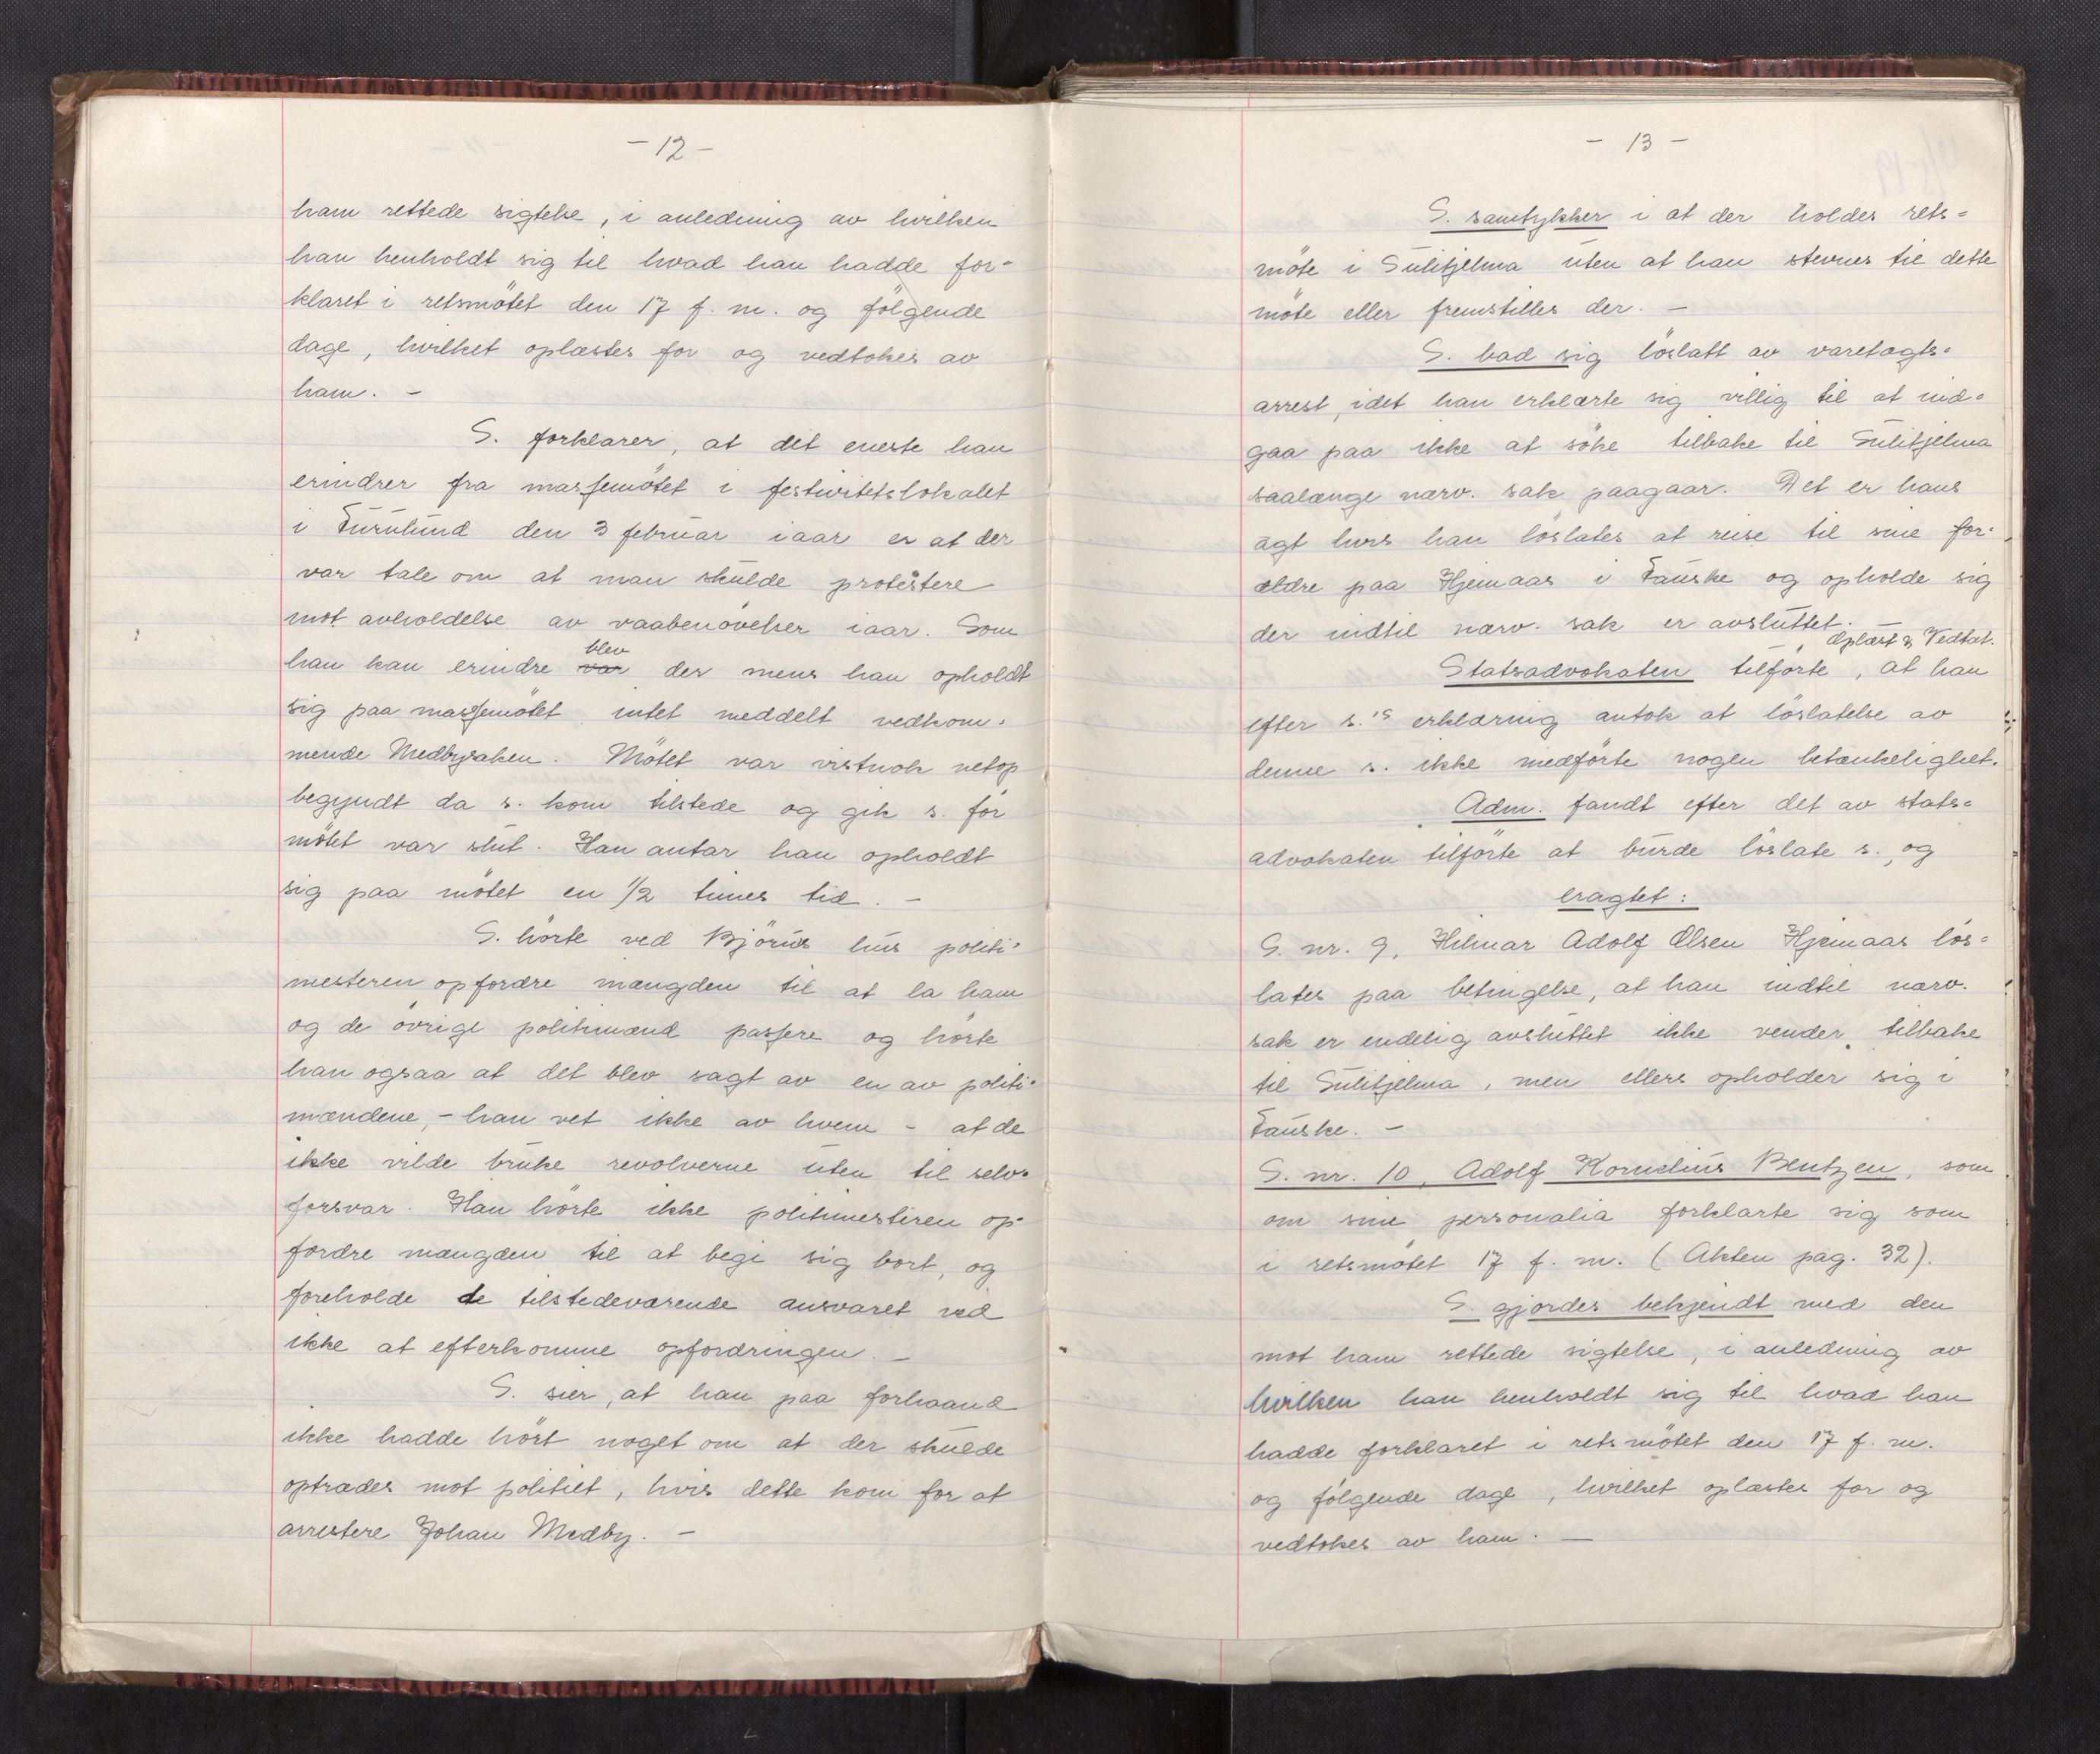 - 12 -
ham rettede sigtelse, i anledning av hvilken
han henholdt sig til hvad han hadde for-
klaret i retsmötet den 17 f. m. og fölgende
dage, hvilket oplæstes for og vedtokes av
ham. -
S. forklarer, at det eneste han
erindrer fra massemötet i festivitetslokalet
i Furulund den 3 februar iaar er at der
var tale om at man skulde protestere
mot avholdelse av vaabenövelser iaar. Som
han kan erindre var blev der mens han opholdt
sig paa massemötet intet meddelt vedkom-
mende Medbysaken. Mötet var vistnok netop
begyndt da s. kom tilstede og gik s. för
mötet var slut. Han antar han opholdt
sig paa mötet en 1/2 times tid. -
S. hörte ved Björns hus politi-
mesteren opfordre mængden til at la ham
og de övrige politimænd passere og hörte
han ogsaa at det blev sagt av en av politi-
mændene, - han vet ikke av hvem - at de
ikke vilde bruke revolverne uten til selv-
forsvar. Han hörte ikke politimesteren op-
fordre mængden til at begi sig bort, og
foreholde de tilstedeværende ansvaret ved
ikke at efterkomme opfordringen. -
S. sier, at han paa forhaand
ikke hadde hört noget om at der skulde
optrædes mot politiet, hvis dette kom for at
arrestere Johan Medby. -
- 13 -
S. samtykker i at der holdes rets-
möte i Sulitjelma uten at han stevnes til dette
möte eller fremstilles der. -
S. bad sig löslatt av varetægts-
arrest, idet han erklærte sig villig til at ind-
gaa paa ikke at söke tilbake til Sulitjelma
saalænge nærv. sak paagaar. Det er hans
agt hvis han löslates at reise til sine for-
ældre paa Hjemaas i Fauske og opholde sig
der indtil nærv. sak er avsluttet. -
Oplæst & Vedtat.
Statsadvokaten tilförte, at han
efter s.'s erklæring antok at löslatelse av
denne s. ikke medförte nogen betænkelighet.
Adm. fandt efter det av stats-
advokaten tilförte at burde löslate s. og
eragtet:
S. nr. 9, Hilmar Adolf Olsen Hjemaas lös-
lates paa betingelse, at han indtil nærv.
sak er endelig avsluttet ikke vender tilbake
til Sulitjelma, men ellers opholder sig i
Fauske. -
S. nr. 10, Adolf Kornelius Bentzen, som
om sine personalia forklarte sig som
i retsmötet 17 f. m. (Akten pag. 32).
S. gjordes bekjendt med den
mot ham rettede sigtelse, i anledning av
hvilken han henholdt sig til hvad han
hadde forklaret i retsmötet den 17 f. m.
og fölgende dage, hvilket oplæstes for og
vedtokes av ham. -